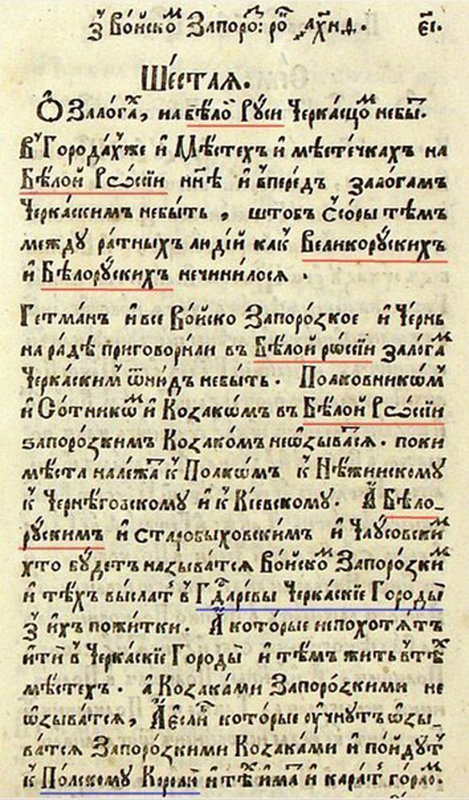 з̾ Во́йскоⷨ Запоро́: ро́ⷦ ҂ахн҃д. є҃і.
Ше́стаѧ.
Ѡ҆ Зало́гаⷯ, на бѣ́лоⷪ҇ Рꙋ́си Черка́сцоⷨ небы́ⷮ.
Въ Города́ⷯже и҆ Мѣ́стеⷯ и҆ мѣсте́чкахъ на
Бѣ́лой Рѡсі́и нн҃ѣ и҆ впере́дъ зало́гамъ
Черка́скимъ небы́ть, што́бъ ссо́ры тѣ́мъ
ме́ждꙋ ра́тныхъ люді́й каⷦ Великорꙋ́скихъ
и҆ Бѣлорꙋ́скихъ нечини́лосѧ.
Ге́тманъ и҆ все Во́йско Запоро́зкое и҆ Че́рнь
на ра́дѣ приговори́ли въ Бѣ́лой рѡсі́и зало́гаⷨ
Черка́скиⷨ ѿни́дъ небы́ть. Полко́вникѡⷨ
и҆ Со́тникѡⷨ и҆ Козакѡ́мъ въ Бѣ́лой Рѡсі́и
запоро́зкимъ Козако́мъ неѡ҆зыва́тⷭ҇ѧ. поки
мѣста̀ належа́ⷮ к̾ Полкѡ́мъ к̾ Нѣ́жинскомꙋ
к̾ Чернѣ́говскомꙋ и҆ к̾ Кі́евскомꙋ. А҆ Бѣло-
рꙋ́скимъ и҆ старобы́ховскимъ и҆ Чаꙋсовскиⷨ
хто бꙋ́детъ называ́тсѧ Во́йскоⷨ Запоро́зкиⷨ
и҆ тѣ́хъ вы́слаⷮ в̾ Гдⷭ҇ре́вы Черка́скіе Горо́ды
з̾ и҆́хъ пожи́тки. А҆ кото́рые непохотѧ́тъ
и҆ти́ в̾ Черка́скіе Горо́ды и҆ тѣ́мъ жи́ть в̾тѣⷯ
мѣ́стехъ. а҆ Козака́ми Запоро́зкими не
ѡ҆зыва́тсѧ, А҆ е҆́сли кото́рые ᲂу҆чнꙋ́тъ ѡ҆зы-
ва́тсѧ Запоро́зкими Козака́ми и҆ по́йдꙋⷮ
к̾ По́лскомꙋ Королю̀ и҆ тѣⷯ и҆ма́ⷮ и҆ кара́ⷮ го́рлоⷨ.